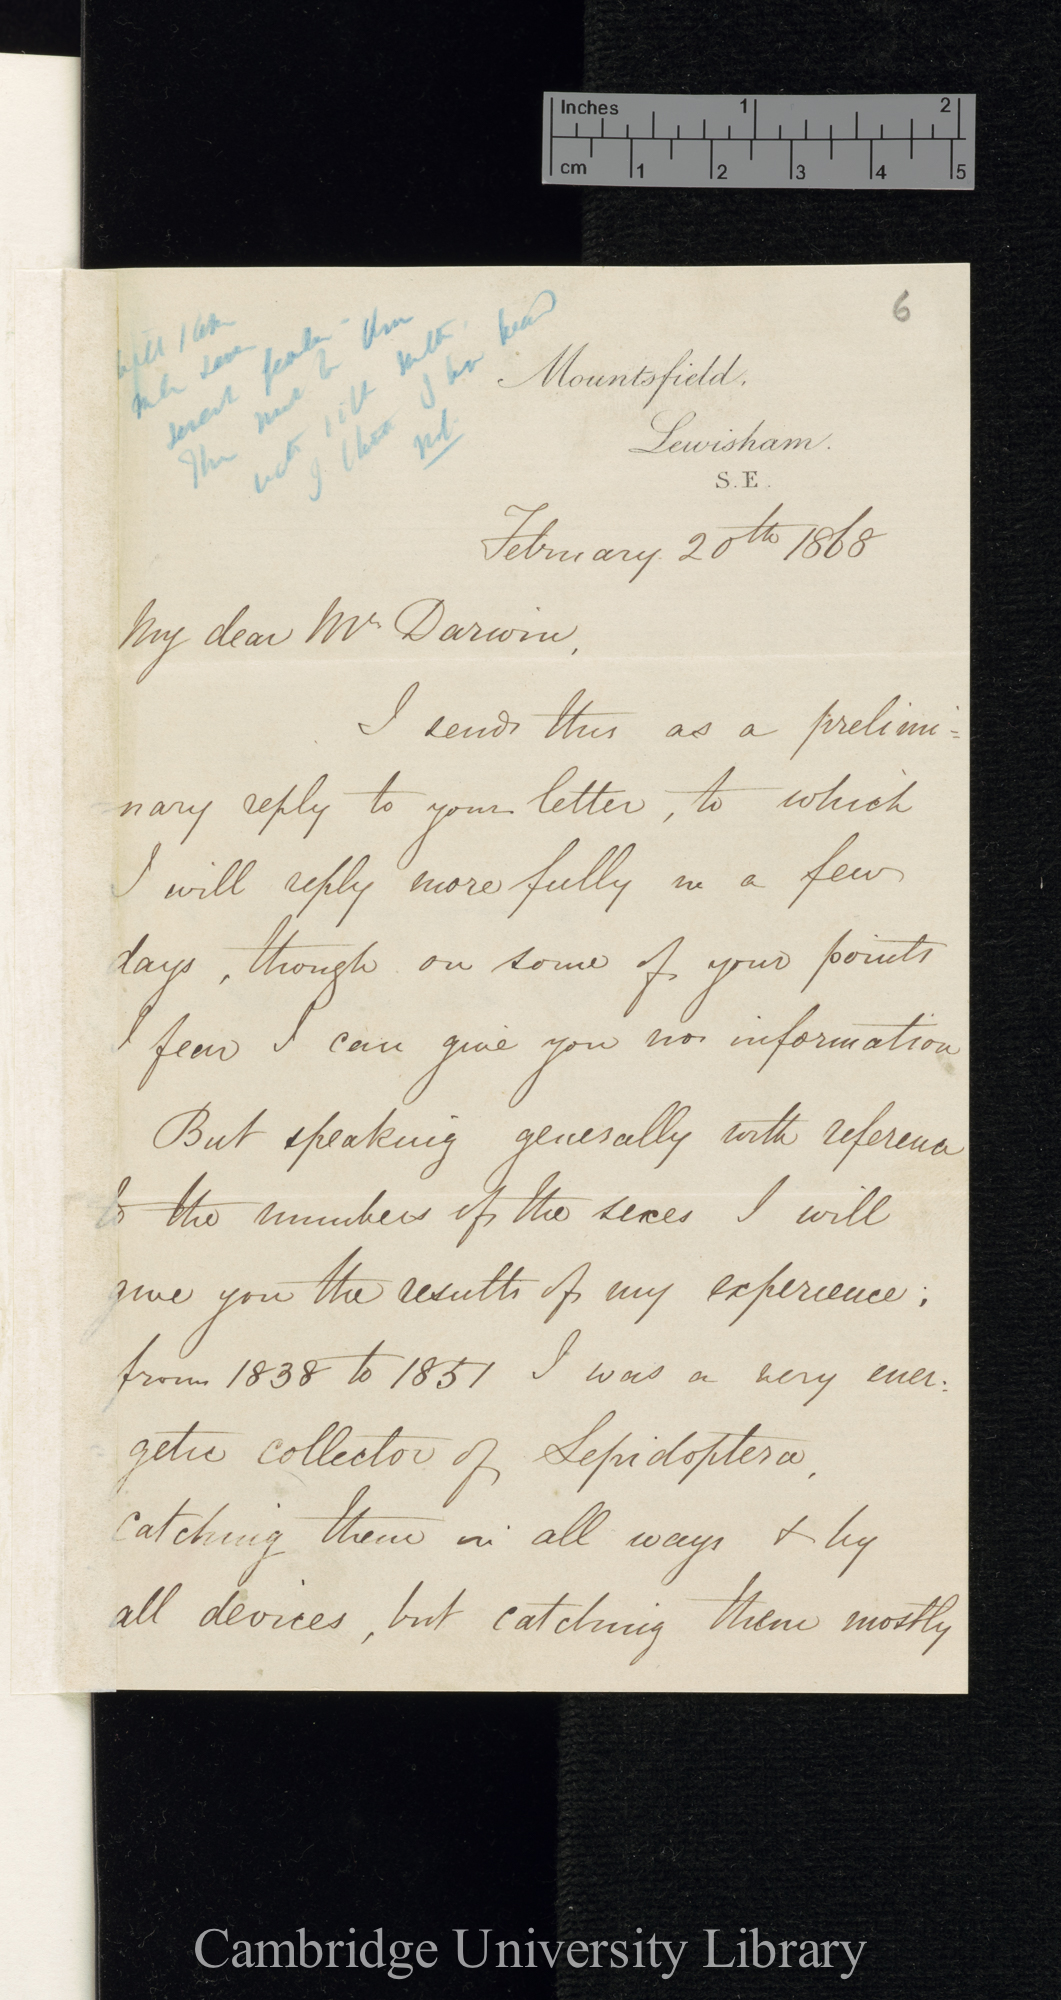 Inches 1 2
cm 1 2 3 4 5
6
Mountsfield.
Lewisham.
S.E.
not
February 20th 1868
My dear Mr Darwin,
I send this as a prelimi-
nary reply to your letter, to which
I will reply more fully in a few
days, though on some of your points
I fear I can give you no information
But speaking generally with reference
to the numbers of the sexes I will
give you the results of my experience;
from 1838 to 1851 I was a very ener-
getic collector of Lepidoptera,
catching them in all ways & by
all devices, but catching them mostly
Cambridge University Library